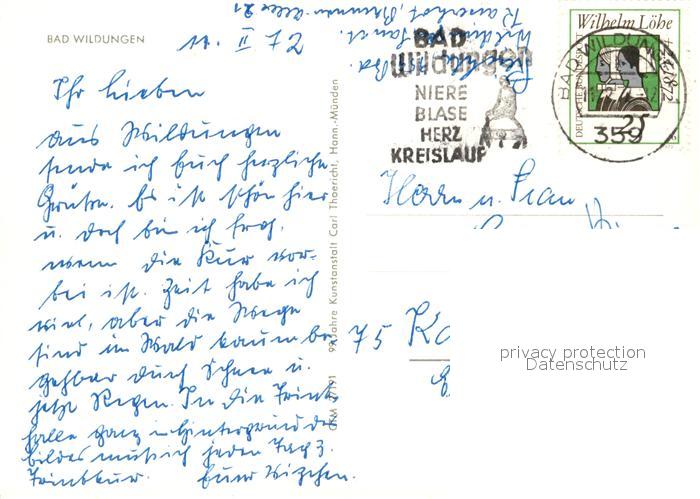 BAD WILDUNGEN
Ihr Lieben
aus Wildungen
sende ich Euch herzliche
Grüße. Es ist schön hier
u. doch bin ich froh,
wenn die Kur vor-
bei ist. Zeit habe ich
viel, aber die Wege
sind im Wald kaum be
gehbar durch Schnee u.
jetzt Regen. In die Trink-
halle ganz im Hintergrund des
Bildes muß ich jeden Tag z.
Trinkkur. Eure
99 Jahre Kunstanstalt Carl Thoericht, Hann.-Münden
BAD
Wildungen
NIERE
BLASE
HERZ
KREISLAUF
Wilhelm Löhe
DEUTSCHE BUNDESPOST
25
BAD WILDUNGEN
359
Herrn u. Frau
75
privacy protection
Datenschutz